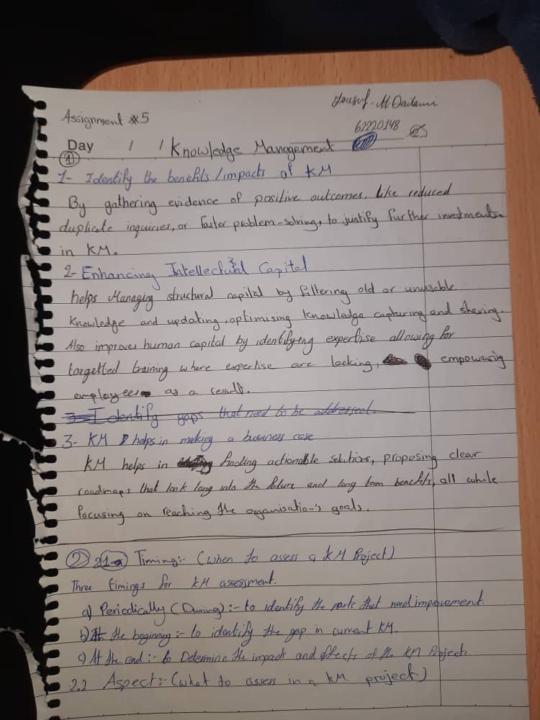 Yousuf - Al Dailami
Assignment #5
62220148
Day / / Knowledge Management
①
1- Identify the benefits/impacts of KM
By gathering evidence of positive outcomes. Like reduced
duplicate inquiries, or faster problem-solving, to justify further investments
in KM.
2- Enhancing Intellectual Capital
helps Managing structural capital by filtering old or unusable
knowledge and updating, optimising knowledge capturing and sharing.
Also improves human capital by identifying expertise allowing for
targetted training where expertise are lacking, empowering
employees as a result.
3- Identify gaps that need to be addressed.
3- KM helps in making a business case
KM helps in finding actionable solutions, proposing clear
roadmaps that look long into the future and long term benefits, all while
focusing on reaching the organisation's goals.
② 2.1 Timing:- (when to assess a KM Project)
Three timings for KM assessment.
a) Periodically (During):- to identify the parts that need improvement
b) At the beginning:- to identify the gap in current KM.
c) At the end:- to Determine the impact and effects of the KM Project.
2.2 Aspect:- (what to assess in a KM project)